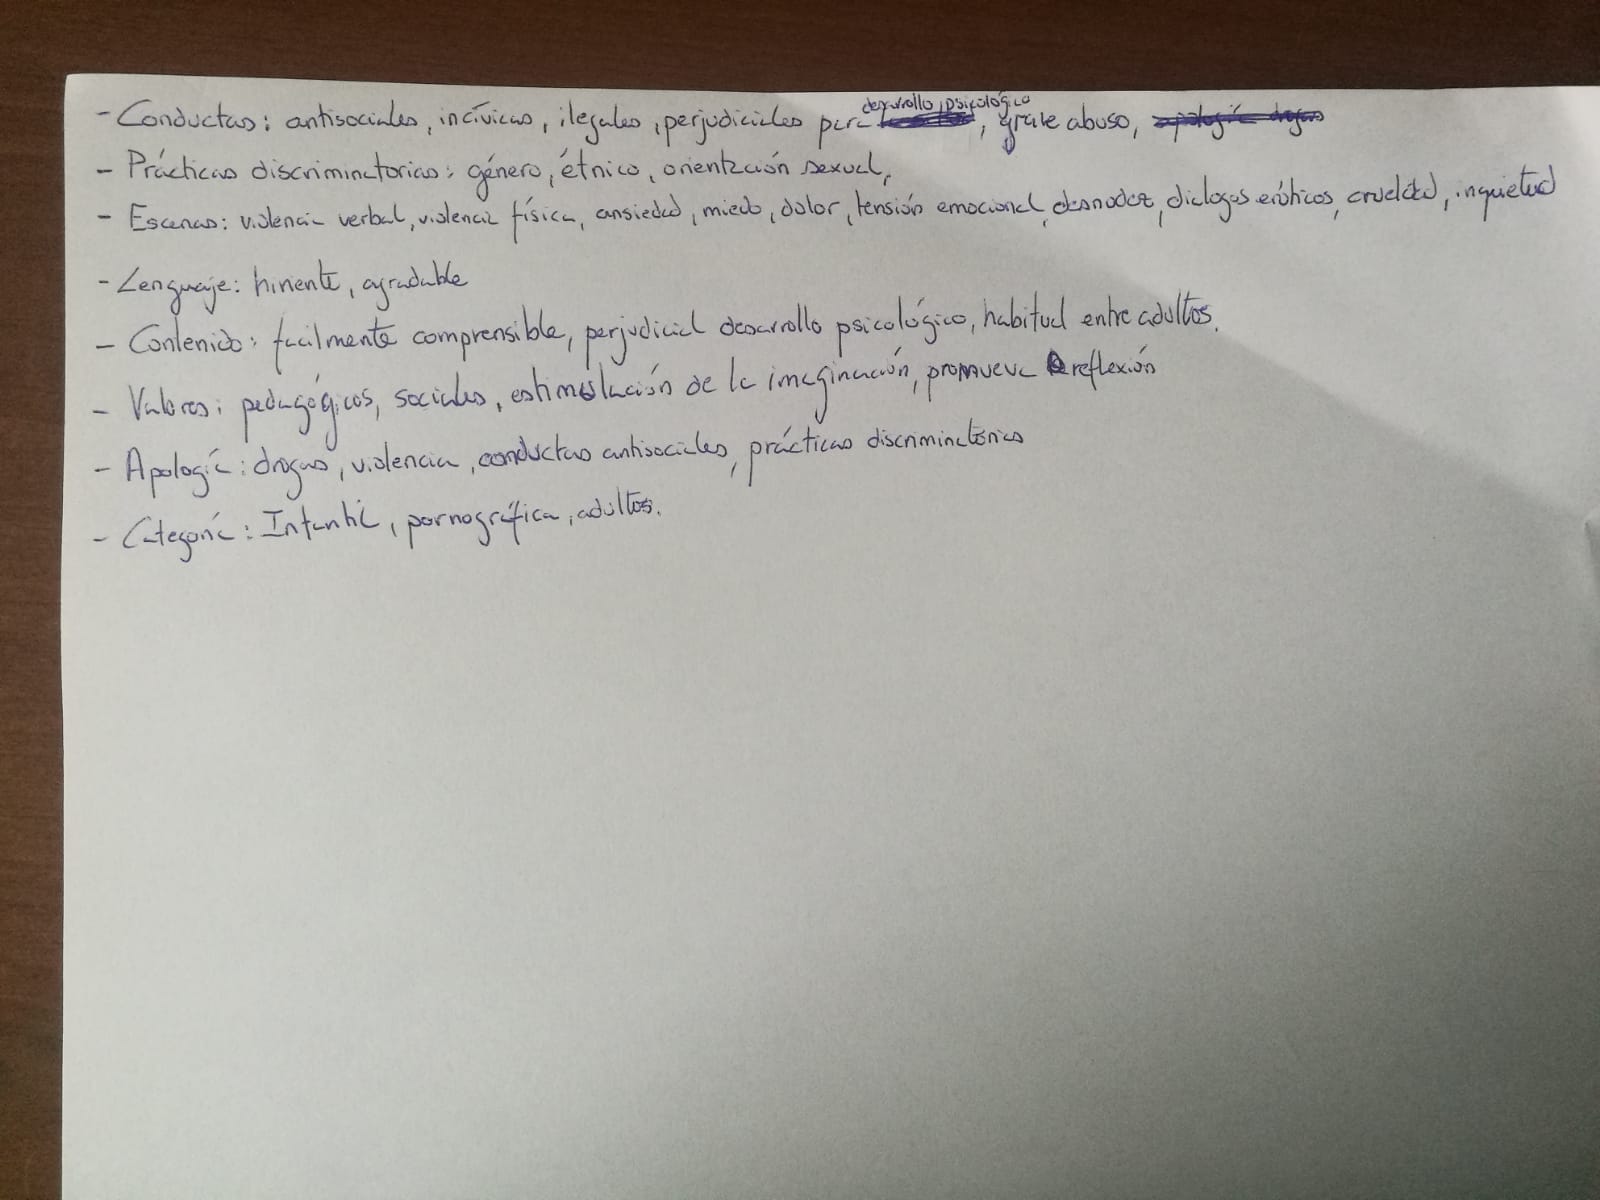 - Conductas: antisociales, incívicas, ilegales, perjudiciales para desarrollo psicológico, grave abuso, apología drogas
- Prácticas discriminatorias: género, étnico, orientación sexual,
- Escenas: violencia verbal, violencia física, ansiedad, miedo, dolor, tensión emocional, desnudez, dialogos eróticos, crueldad, inquietud
- Lenguaje: hiriente, agradable
- Contenido: facilmente comprensible, perjudicial desarrollo psicológico, habitual entre adultos.
- Valores: pedagógicos, sociales, estimulación de la imaginación, promueve reflexión
- Apología: drogas, violencia, conductas antisociales, prácticas discriminatorias
- Categoría: Infantil, pornográfica, adultos.